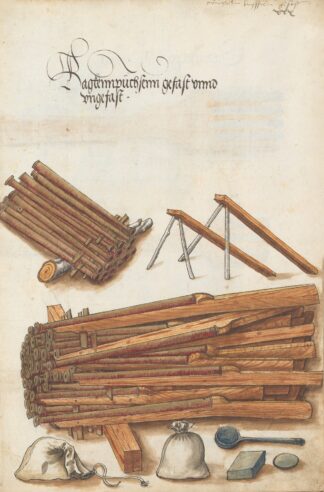 Hagkennpüchsenn gefast vnnd
vngefast .